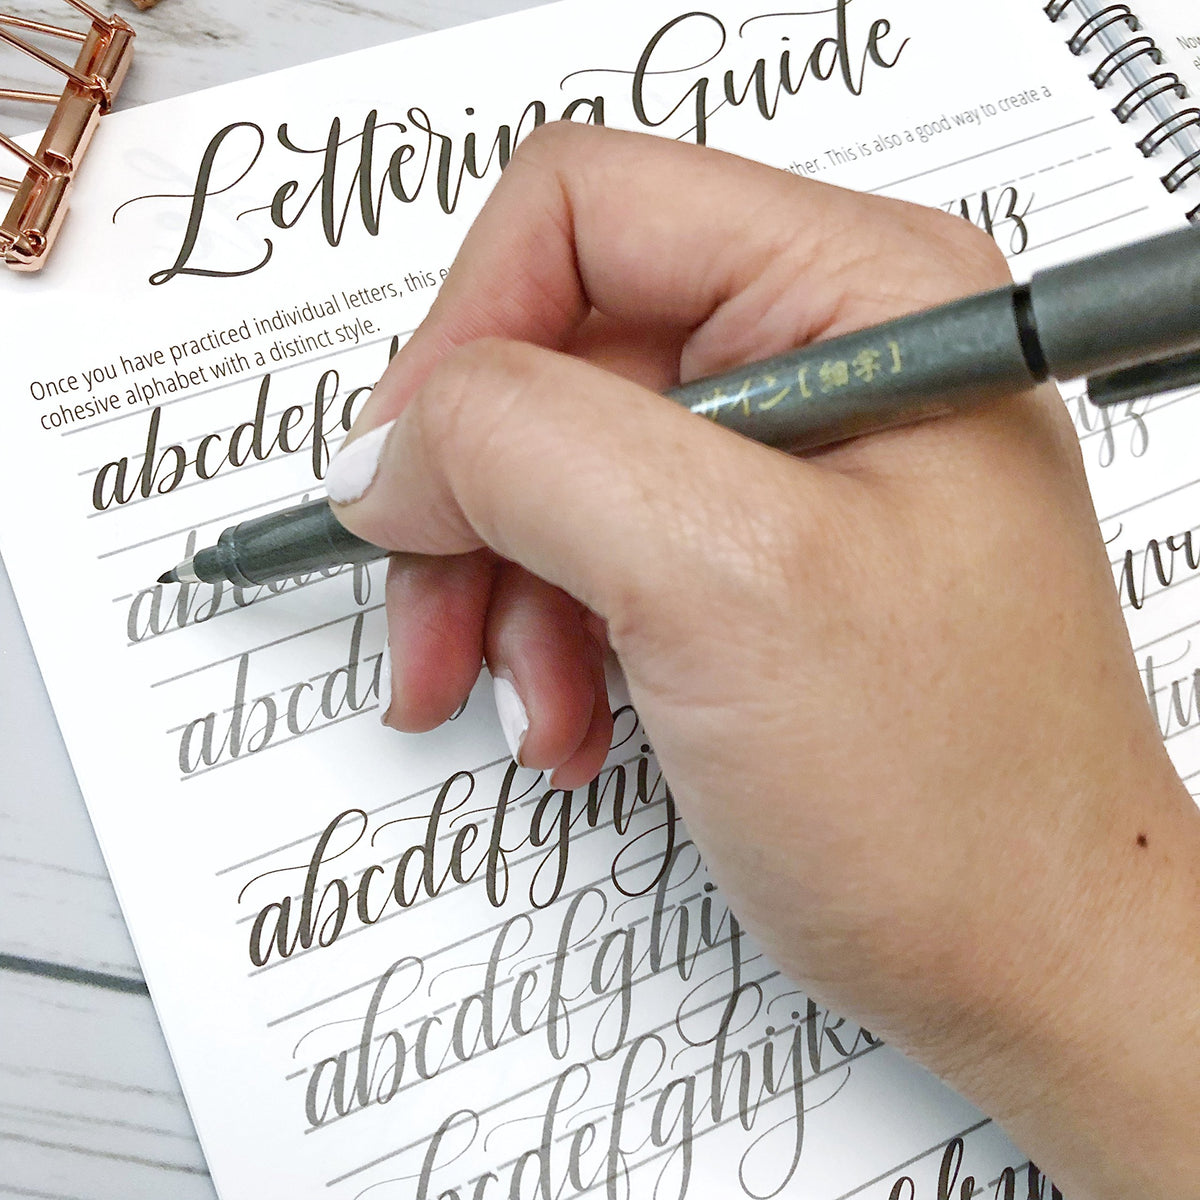 Lettering Guide
Once you have practiced individual letters, this other. This is also a good way to create a
cohesive alphabet with a distinct style.
abcdef yz
サイン【細字】
abcdef yz
abcd
abcdefghij
abcdefghij
abcdefghijk
Now